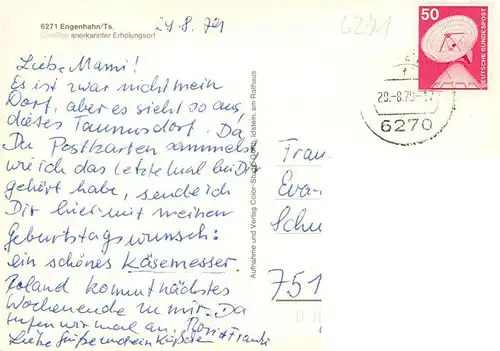 6271 Engenhahn/Ts.
anerkannter Erholungsort
6271
50
DEUTSCHE BUNDESPOST
29.-8.79-17
6270
Liebe Mami!
Es ist zwar nicht mein
Dorf, aber es sieht so aus,
dieses Taunusdorf. Da
Du Postkarten sammelst
wie ich das letzte mal bei Dir
gehört habe, sende ich
Dir hier mit meinen
Geburtstagswunsch:
ein schönes Käsemesser.
Roland kommt nächstes
Wochenende zu mir. Da
rufen wir mal an.
Liebe Grüße und ein Küßchen
Aufnahme und Verlag Color-Studio Idstein, am Rathaus
Frau
Eva-
Schu
751